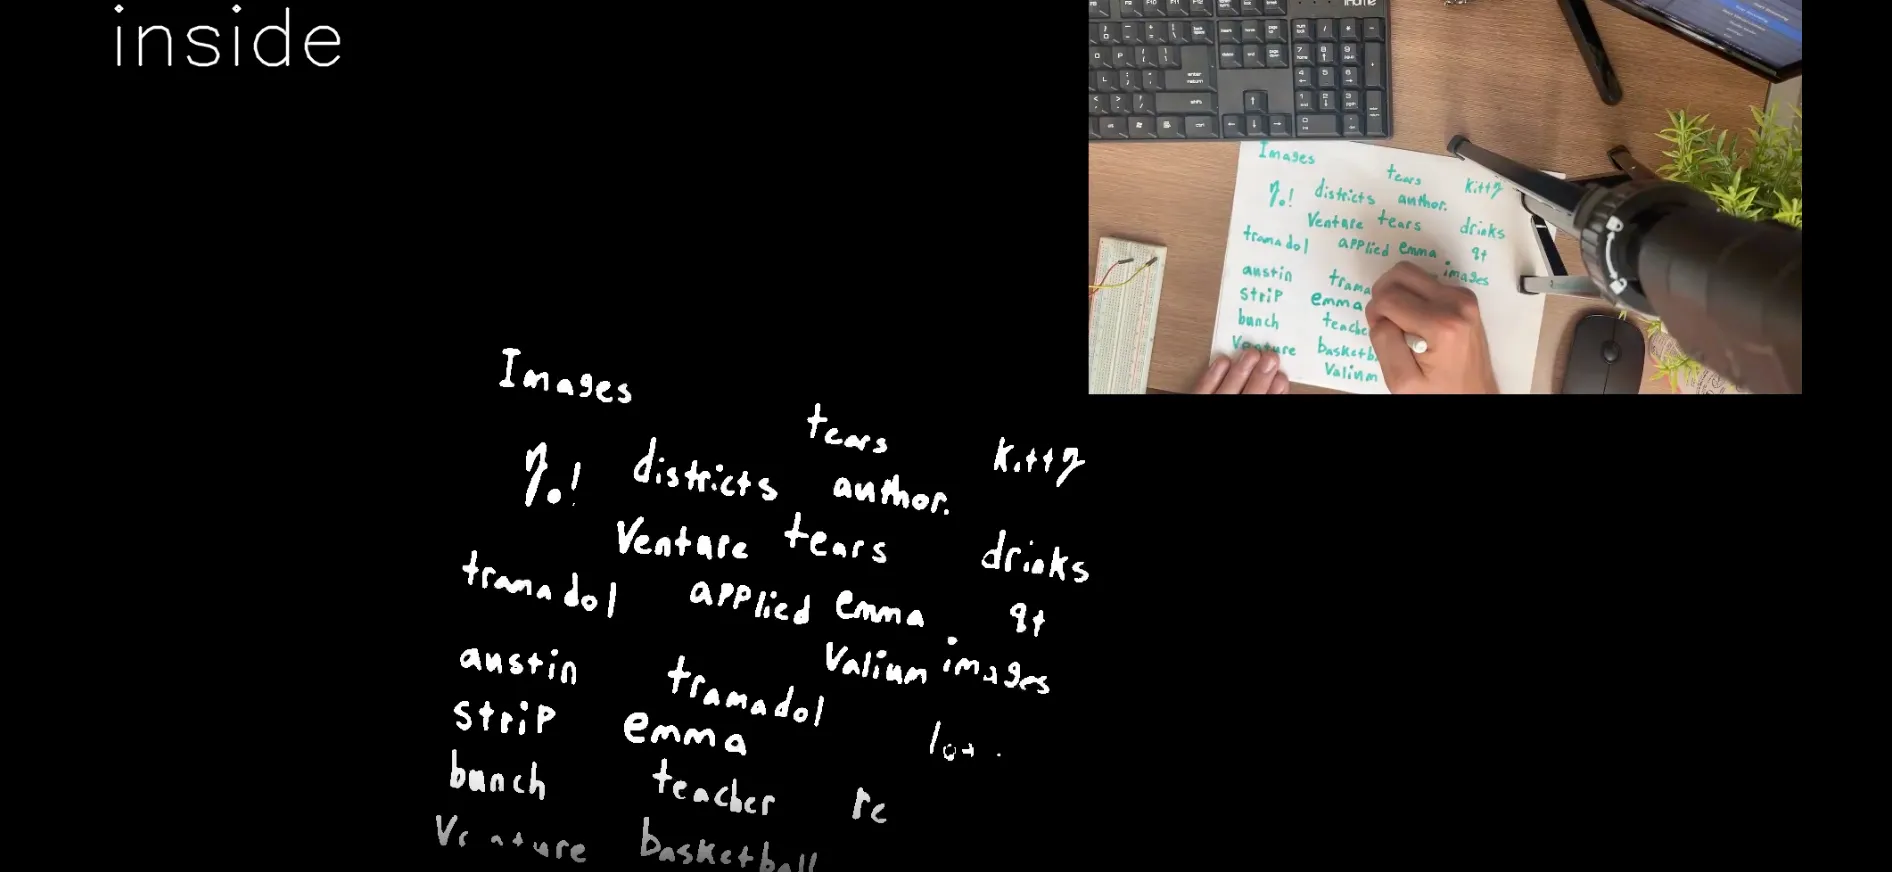 inside
Images
tears kitty
%! districts author.
Venture tears drinks
tramadol applied emma qt
Valium images
austin tramadol
strip emma lot.
bunch teacher re
Venture basketball
iHome
Images
tears kitty
%! districts author.
Venture tears drinks
tramadol applied emma qt
images
austin trama
strip emma
bunch teache
Venture basketb
Valium